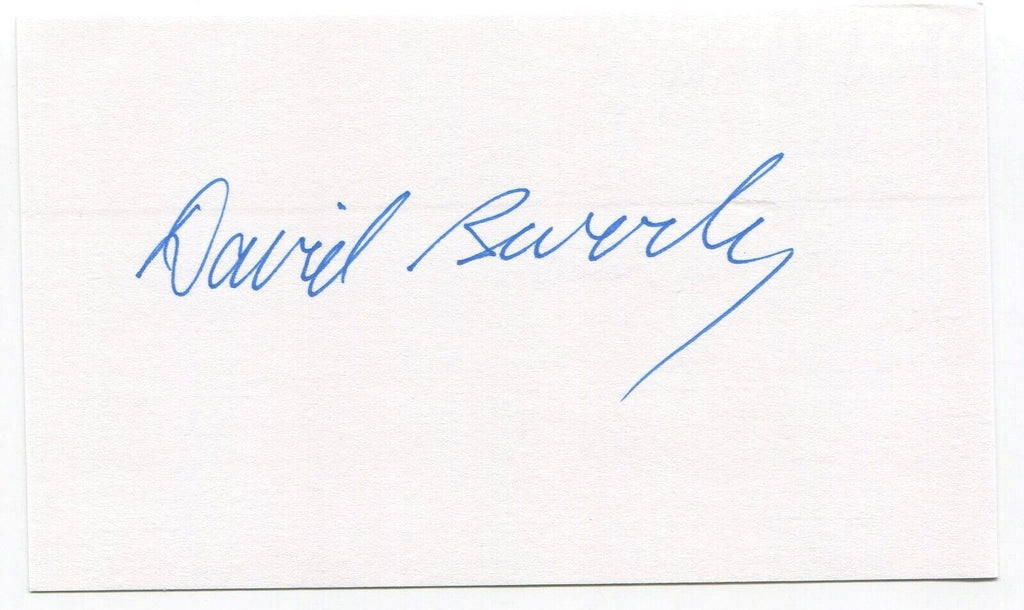 David Beverly